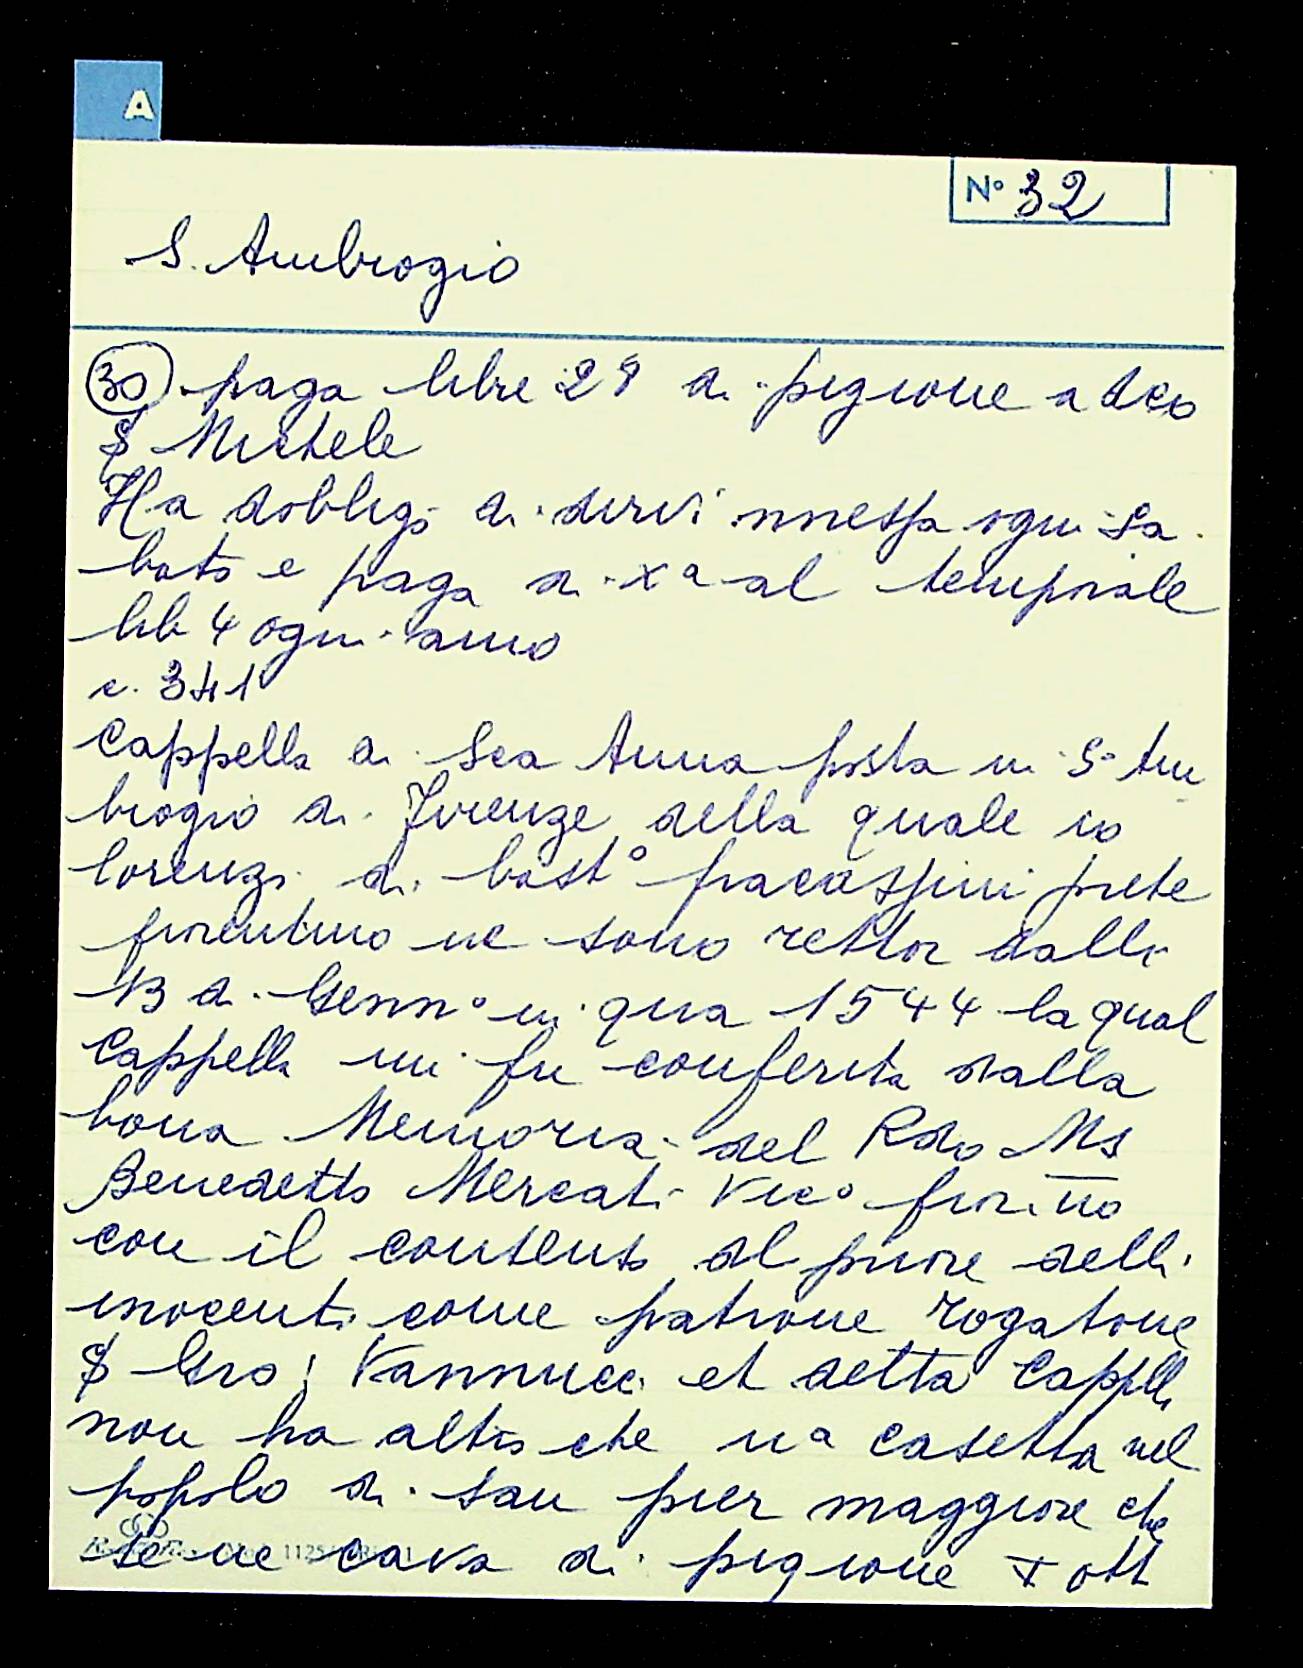 A
N° 32
S. Ambrogio
30 paga libre 28 di pigione a dco
S Michele
Ha dobligo di dirvi mnessa ogni sa
bato e paga di xª al temporale
lib 4 ogni anno
c. 341
Cappella di Sca Anna posta in S° Am
brogio di Firenze della quale io
lorenzo di bast° pretre
fiorentino ne sono rettor dalli
13 di Genn° in qua 1544 la qual
Cappella mi fu conferita dalla
bona Memoria del Rdo Ms
Benedetto Mercati Vic° fior.no
con il consenso del priore delli
inocenti come patrone rogatone
S Gro: Vannucci et detta Cappella
non ha altro che uª casetta nel
popolo di san pier maggiore che
se ne cava di pigione ott